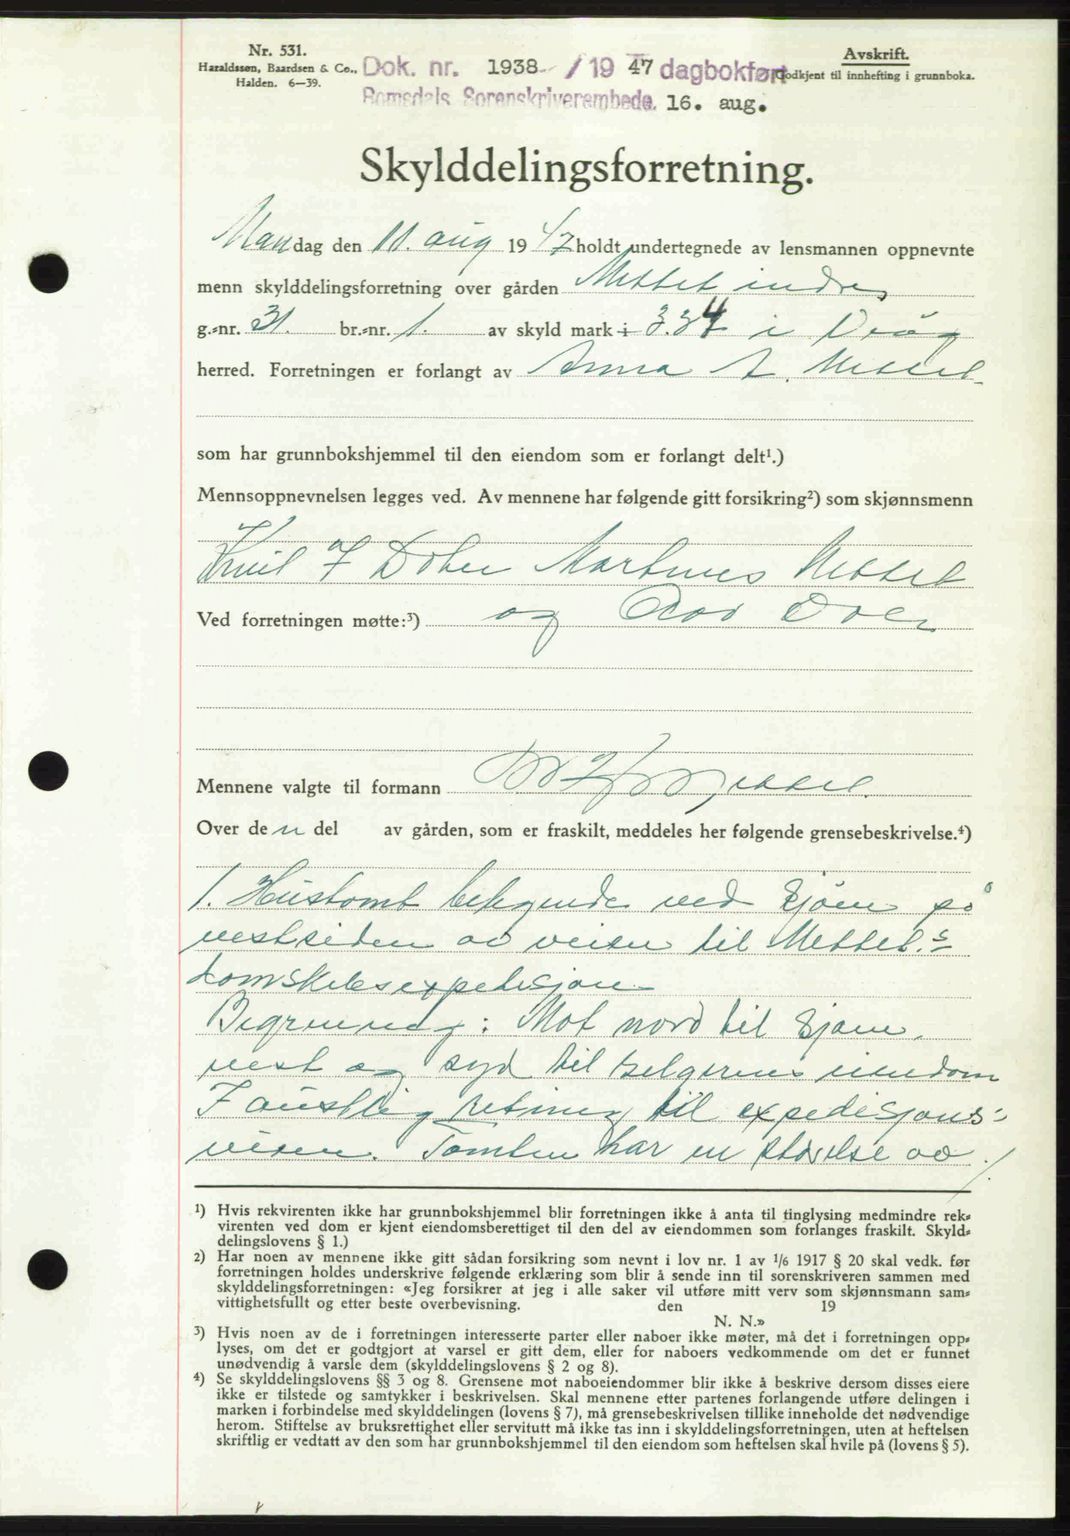 Nr. 531.
Haraldssøn, Baardsen & Co.,
Halden. 6—39.
Avskrift.
Godkjent til innhefting i grunnboka.
Dok. nr. 1938 / 19 47 dagbokført
Romsdals Sorenskriverembede. 16. aug.
Skylddelingsforretning.
Mandag den 11. aug 1947 holdt undertegnede av lensmannen oppnevnte
menn skylddelingsforretning over gården Mittet indre,
g.-nr. 31. br.-nr. 1. av skyld mark i 3.34 i Veøy
herred. Forretningen er forlangt av Anna A. Mittet
som har grunnbokshjemmel til den eiendom som er forlangt delt¹.)
Mennsoppnevnelsen legges ved. Av mennene har følgende gitt forsikring²) som skjønnsmenn
Mittet
Ved forretningen møtte:³) og
Mennene valgte til formann Mittet
Over den del av gården, som er fraskilt, meddeles her følgende grensebeskrivelse.⁴)
1. Hustomt beligende ved sjøen på
vestsiden av veien til Mittet.s
damskibsexpedisjon
Begrensning: Mot nord til sjøen,
vest og syd til selgerens eiendom
I austlig retning til expedisjons-
veien. Tomten har en størelse av ./.
¹) Hvis rekvirenten ikke har grunnbokshjemmel blir forretningen ikke å anta til tinglysing medmindre rek-
virenten ved dom er kjent eiendomsberettiget til den del av eiendommen som forlanges fraskilt. Skyld-
delingslovens § 1.)
²) Har noen av mennene ikke gitt sådan forsikring som nevnt i lov nr. 1 av ¹/₆ 1917 § 20 skal vedk. før
forretningen holdes underskrive følgende erklæring som blir å sende inn til sorenskriveren sammen med
skylddelingsforretningen: «Jeg forsikrer at jeg i alle saker vil utføre mitt verv som skjønnsmann sam-
vittighetsfullt og etter beste overbevisning. den 19
N. N.»
³) Hvis noen av de i forretningen interesserte parter eller naboer ikke møter, må det i forretningen opp-
lyses, om det er godtgjort at varsel er gitt dem, eller for naboers vedkommende om det er funnet
unødvendig å varsle dem (skylddelingslovens § 2 og 8).
⁴) Se skylddelingslovens §§ 3 og 8. Grensene mot naboeiendommer blir ikke å beskrive dersom disses eiere
ikke er tilstede og samtykker i beskrivelsen. Skal mennene etter partenes forlangende utføre delingen i
marken i forbindelse med skylddelingen (lovens § 7), må grensebeskrivelsen tillike inneholde det nødvendige
herom. Stiftelse av bruksrettighet eller servitutt må ikke tas inn i skylddelingsforretningen, uten at heftelsen
skriftlig er vedtatt av den som har grunnbokshjemmel til den eiendom som heftelsen skal hvile på (lovens § 5).